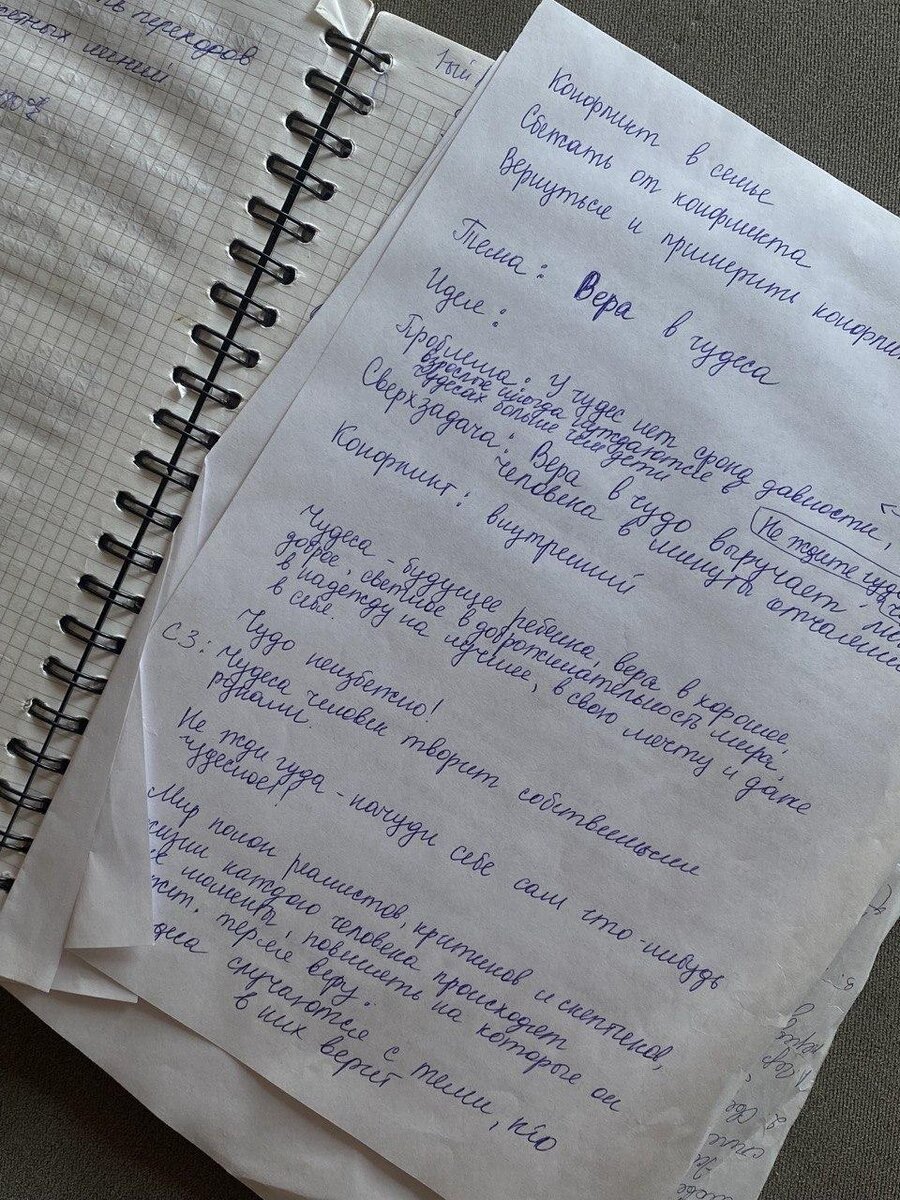 переходов
Конфликт в семье
Сбежать от конфликта
Вернуться и примирить
Тема: Вера в чудеса
Идея: У чудес нет срока давности,
взрослые иногда нуждаются в
чудесах больше чем дети
Проблема:
Не ждите чуда,
Сверхзадача: Вера в чудо выручает
человека в минуты отчаяния
Конфликт: внутренний
Чудеса - будущее ребенка, вера в хорошее,
доброе, светлое, в доброжелательность мира,
в надежду на лучшее, в свою мечту и даже
в себя.
Чудо неизбежно!
СЗ: Чудеса человек творит собственными
руками.
Не жди чуда - начуди себе сам что-нибудь
чудесное!!
Мир полон реалистов, критиков и скептиков,
жизни каждого человека происходят
моменты, повлиять на которые он
теряя веру.
случаются с теми, кто
в них верит